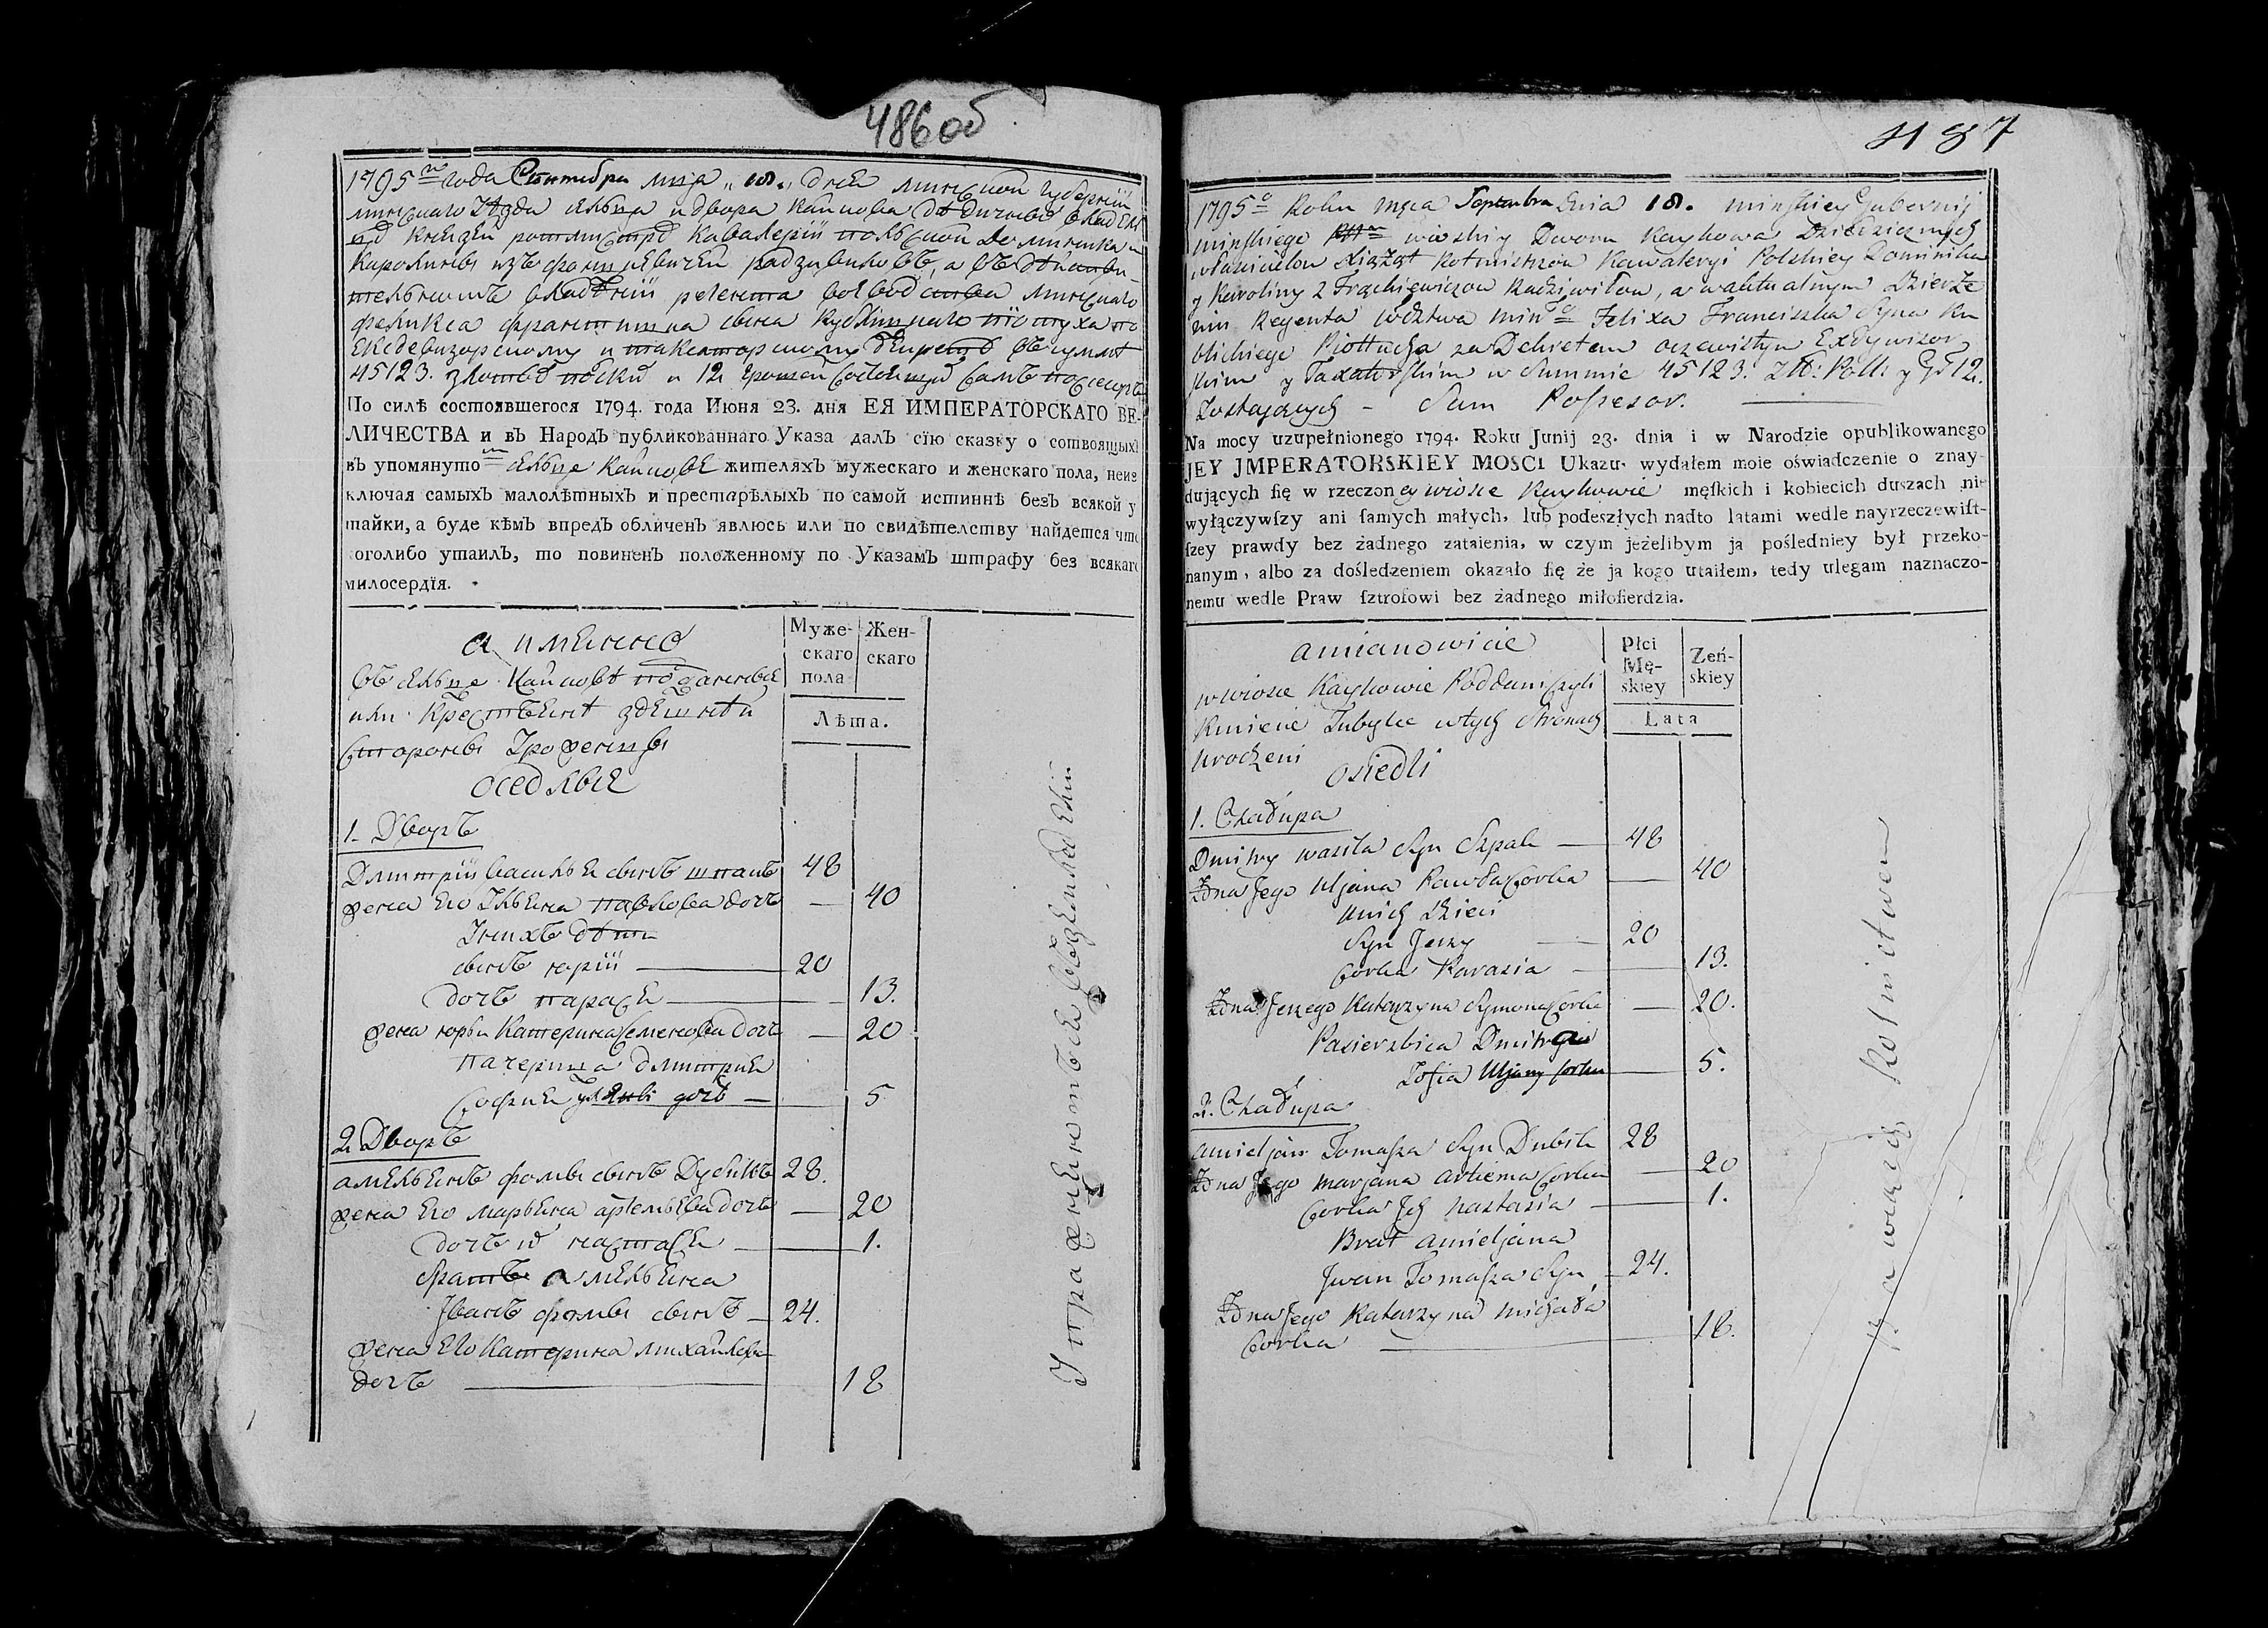 486об
1795го года Сентября мца „18.„ дня минской губернїи
минскаго уезда сельца и двора Кайкова дѣдичныхъ владѣле
цъ князей ротмистръ Кавалерїи польской Доминика и
Каролины изъ радзивиловъ, а въ дѣйстви
тельномъ владѣнїи регента воеводства минскаго
феликса францишка сына кублицкаго пїотуха по
Ексдевизорскому и таксаторскому декрету въ суммѣ
45123. злотыхъ и 12 грошей самъ посесоръ
По силѣ состоявшегося 1794. года Июня 23. дня ЕЯ ИМПЕРАТОРСКАГО ВЕ-
ЛИЧЕСТВА и въ Народъ публикованнаго Указа далъ сїю сказку о сотвоящыхъ
въ упомянутом сельце Кайкове жителяхъ мужескаго и женскаго пола, неиз
ключая самыхъ малолѣтныхъ и престарѣлыхъ по самой истиннѣ безъ всякой у
тайки, а буде кѣмъ впредъ обличенъ явлюсь или по свидѣтелству найдется что
коголибо утаилъ, то повиненъ положенному по Указамъ штрафу без всякаго
милосердїя.
а имянно
Муже-
скаго
пола
Жен-
скаго
Лѣта.
въ сельце Кайковѣ подданныя
или крестьянѣ здешнѣй
стороны
оседлыя
1. Дворъ
Дмитрїи василья сынъ шпакъ 48
жена его Ульяна павлова дочь — 40
У нихъ дѣти
сынъ юрїи — 20
дочь парася — 13.
жена юрья Катерина Семенова дочь — 20
пачерица дмитрия
София уляны дочь — 5
2. Дворъ
амельянъ фомы сынъ Дубикъ 28.
жена его марьяна артемьева дочь — 20
дочь их настася — 1.
братъ амельяна
Иванъ фомы сынъ — 24.
жена его Катерина михайлова
дочь — 18
487
1795o Roku męca Septembra Dnia 18. minskiey Gubernij
minskiego wioski y Dworu Kaykowa Dziedzicznych
własicielow Xiąząt Rotmistrzow Kawaleryi Polskiey Dominika
y Karoliny z Radziwiłow, a w aktualnym Dzierże
niu Regenta wdztwa mingo Felixa Franciszka Syna Ku
blickiego Piottucha za Dekretem oczewistym Exdywizor
skim y Taxatorskim w Summie 45123. Zł: Poll: y Gr 12.
Zostających - Sam Possesor.
Na mocy uzupełnionego 1794. Roku Junij 23. dnia i w Narodzie opublikowanego
JEY JMPERATORSKIEY MOSCI Ukazu, wydałem moie oświadczenie o znay-
dujących ſię w rzeczoney wiosce Kaykowie męſkich i kobiecich duszach nie
wyłączywſzy ani ſamych małych, lub podeszłych nadto latami wedle nayrzeczewiſt-
ſzey prawdy bez żadnego zataienia, w czym jeżelibym ja pośledniey był przeko-
nanym, albo za dośledzeniem okazało ſię że ja kogo utaiłem, tedy ulegam naznaczo-
nemu wedle Praw ſztrofowi bez żadnego miłoſierdzia.
amianowicie
Płci
Mę-
skiey
Zeń-
skiey
Lata
w wiosce Kaykowie Poddani czyli
Kmiecie Tubylce w tych Stronach
urodzeni
osiedli
1. Chałupa
Dmitry wasila Syn Szpak — 48
Żona Jego Uljana Pawła Corka — 40
u nich Dzieci
Syn Jerzy — 20
Corka Parasia — 13.
Żona Jerzego Katarzyna Symona Corka — 20.
Pasierzbica Dmitrego
Zofia Uljany Corka — 5.
2. Chałupa
amieljan Tomasza Syn Dubik 28
Żona Jego marjana artiema Corka — 20
Corka Jch nastazia — 1.
Brat amieljana
Jwan Tomasza Syn — 24.
Żona Jego Katarzyna michała
Corka — 18.